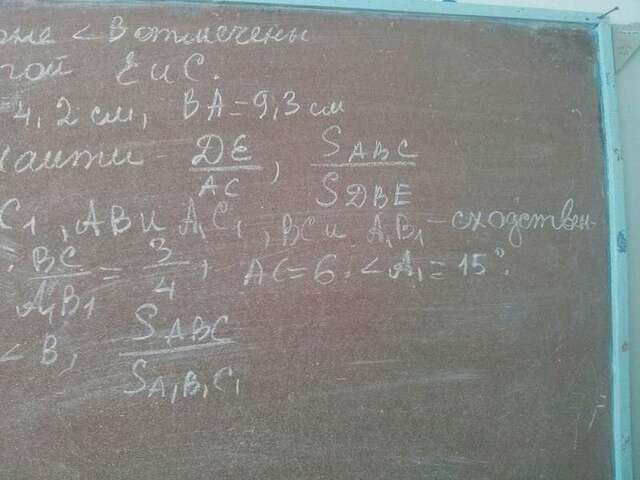 роне <B отмечены
угой E и C.
=4,2 см, BA=9,3 см
найти - DE/AC, S ABC/S DBE
C₁, AB и A₁C₁, BC и A₁B₁ - сходствен-
BC/A₁B₁ = 3/4, AC=6. <A₁=15°.
<B, S ABC/S A₁B₁C₁